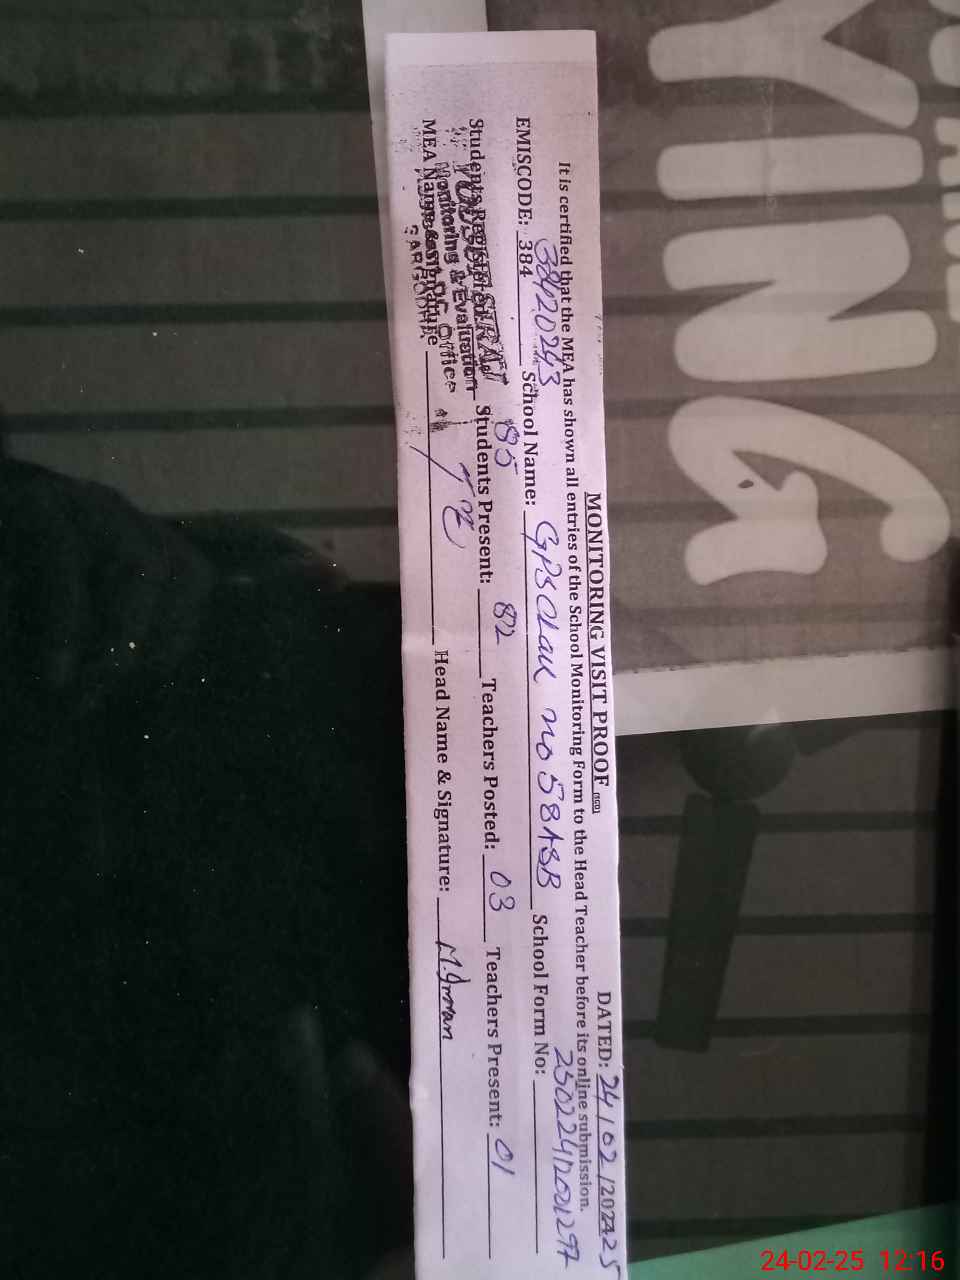 YING
MONITORING VISIT PROOF (SGD)
DATED: 24/02/2025
It is certified that the MEA has shown all entries of the School Monitoring Form to the Head Teacher before its online submission.
EMISCODE: 384 38420243 School Name: GPS Chak no 58ASB School Form No: 25022412001297
Students Registered: 85 Students Present: 82 Teachers Posted: 03 Teachers Present: 01
MEA Name & Signature Head Name & Signature: M. Imran
Monitoring & Evaluation
Office
SARGODHA
24-02-25 12:16